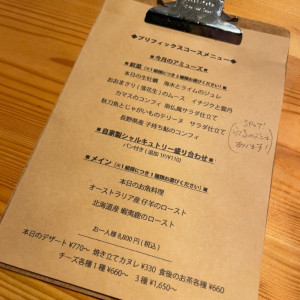 ◆プリフィックスコースメニュー◆
◆今月のアミューズ◆
◆前菜（※1組様につき1種類お選びください）◆
本日の生牡蠣 海水とライムのジュレ
おおまさり（落花生）のムース イチジクと雲丹
カマスのコンフィ 南仏風サラダ仕立て
秋刀魚とじゃがいものテリーヌ サラダ仕立て
長野県産 子持ち鮎のコンフィ
◆自家製シャルキュトリー盛り合わせ◆
パン付き（追加
◆メイン（※1組様につき1種類お選びください）◆
本日のお魚料理
オーストラリア産 仔羊のロースト
北海道産 蝦夷鹿のロースト
お一人様 8,800円（税込）
本日のデザート ¥770～ 焼き立てカヌレ ¥330 食後のお茶各種 ¥660
チーズ各種 1種 ¥660～ 3種 ¥1,650～
あります!